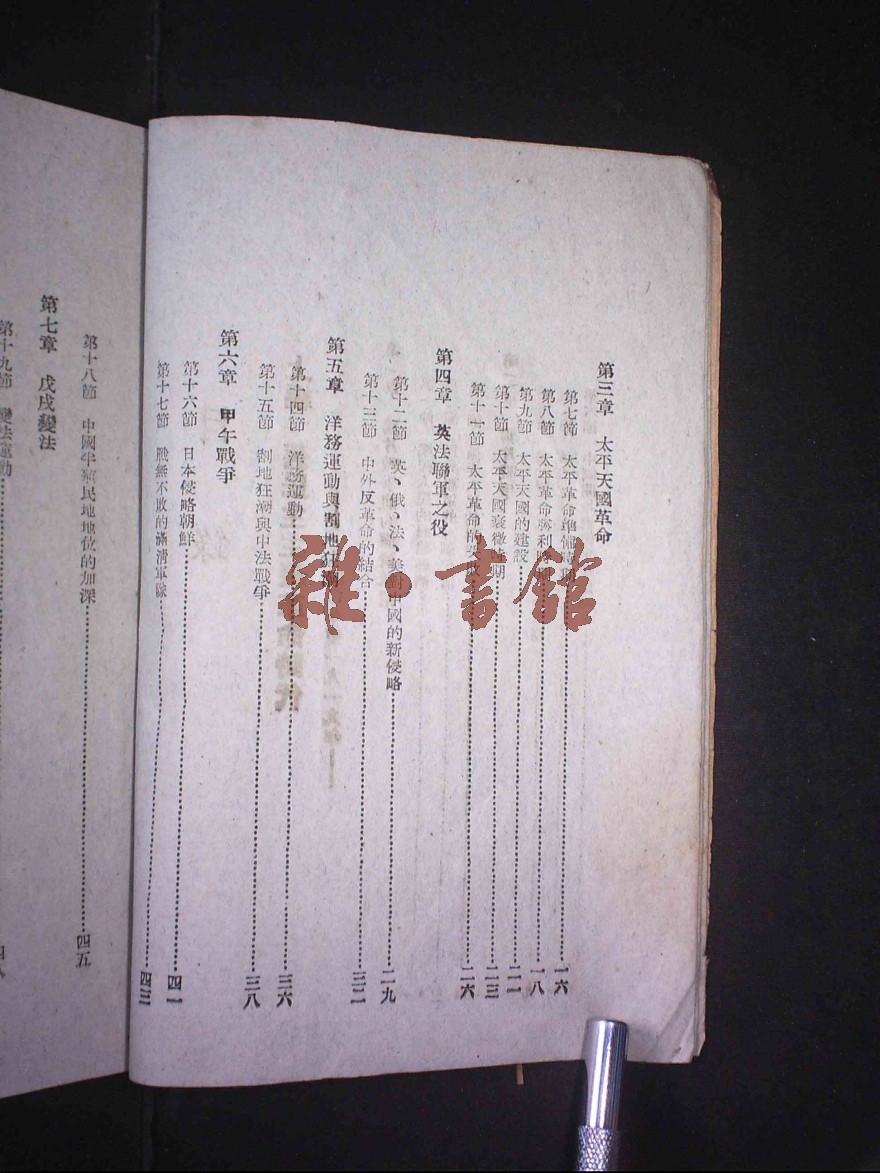 第三章 太平天國革命
第七節 太平革命準備時期……一六
第八節 太平革命勝利……一八
第九節 太平天國的建設……二一
第十節 太平天國衰微時期……二三
第十一節 太平革命的……二六
第四章 英法聯軍之役
第十二節 英、俄、法、美對中國的新侵略……二九
第十三節 中外反革命的結合……三二
第五章 洋務運動與割地狂潮
第十四節 洋務運動……三六
第十五節 割地狂潮與中法戰爭……三八
第六章 甲午戰爭
第十六節 日本侵略朝鮮……四一
第十七節 戰無不敗的滿清軍隊……四三
第十八節 中國半殖民地地位的加深……四五
第七章 戊戌變法
第十九節 變法運動……四八
雜·書館